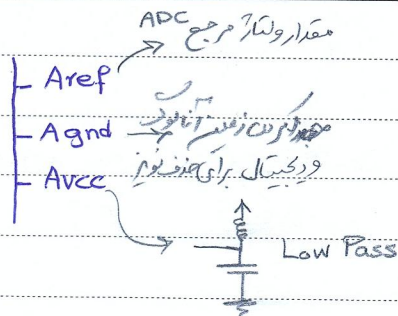 مقدار ولتاژ مرجع ADC
Aref
Agnd
جدا کردن زمین آنالوگ
و دیجیتال برای حذف نویز
Avcc
Low Pass